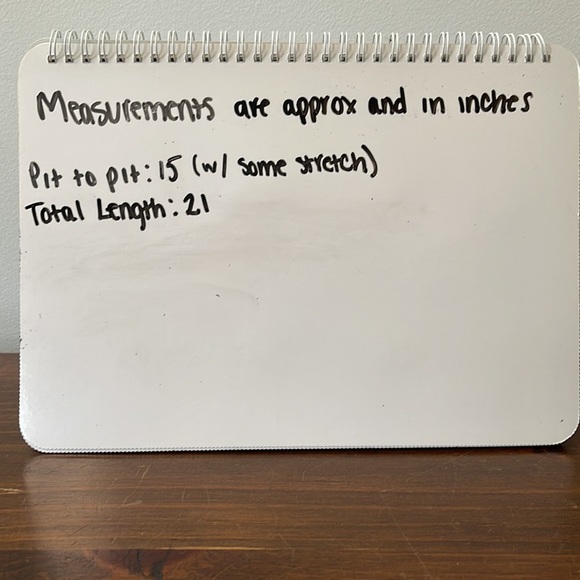 Measurements are approx and in inches
Pit to pit: 15 (w/ some stretch)
Total Length: 21